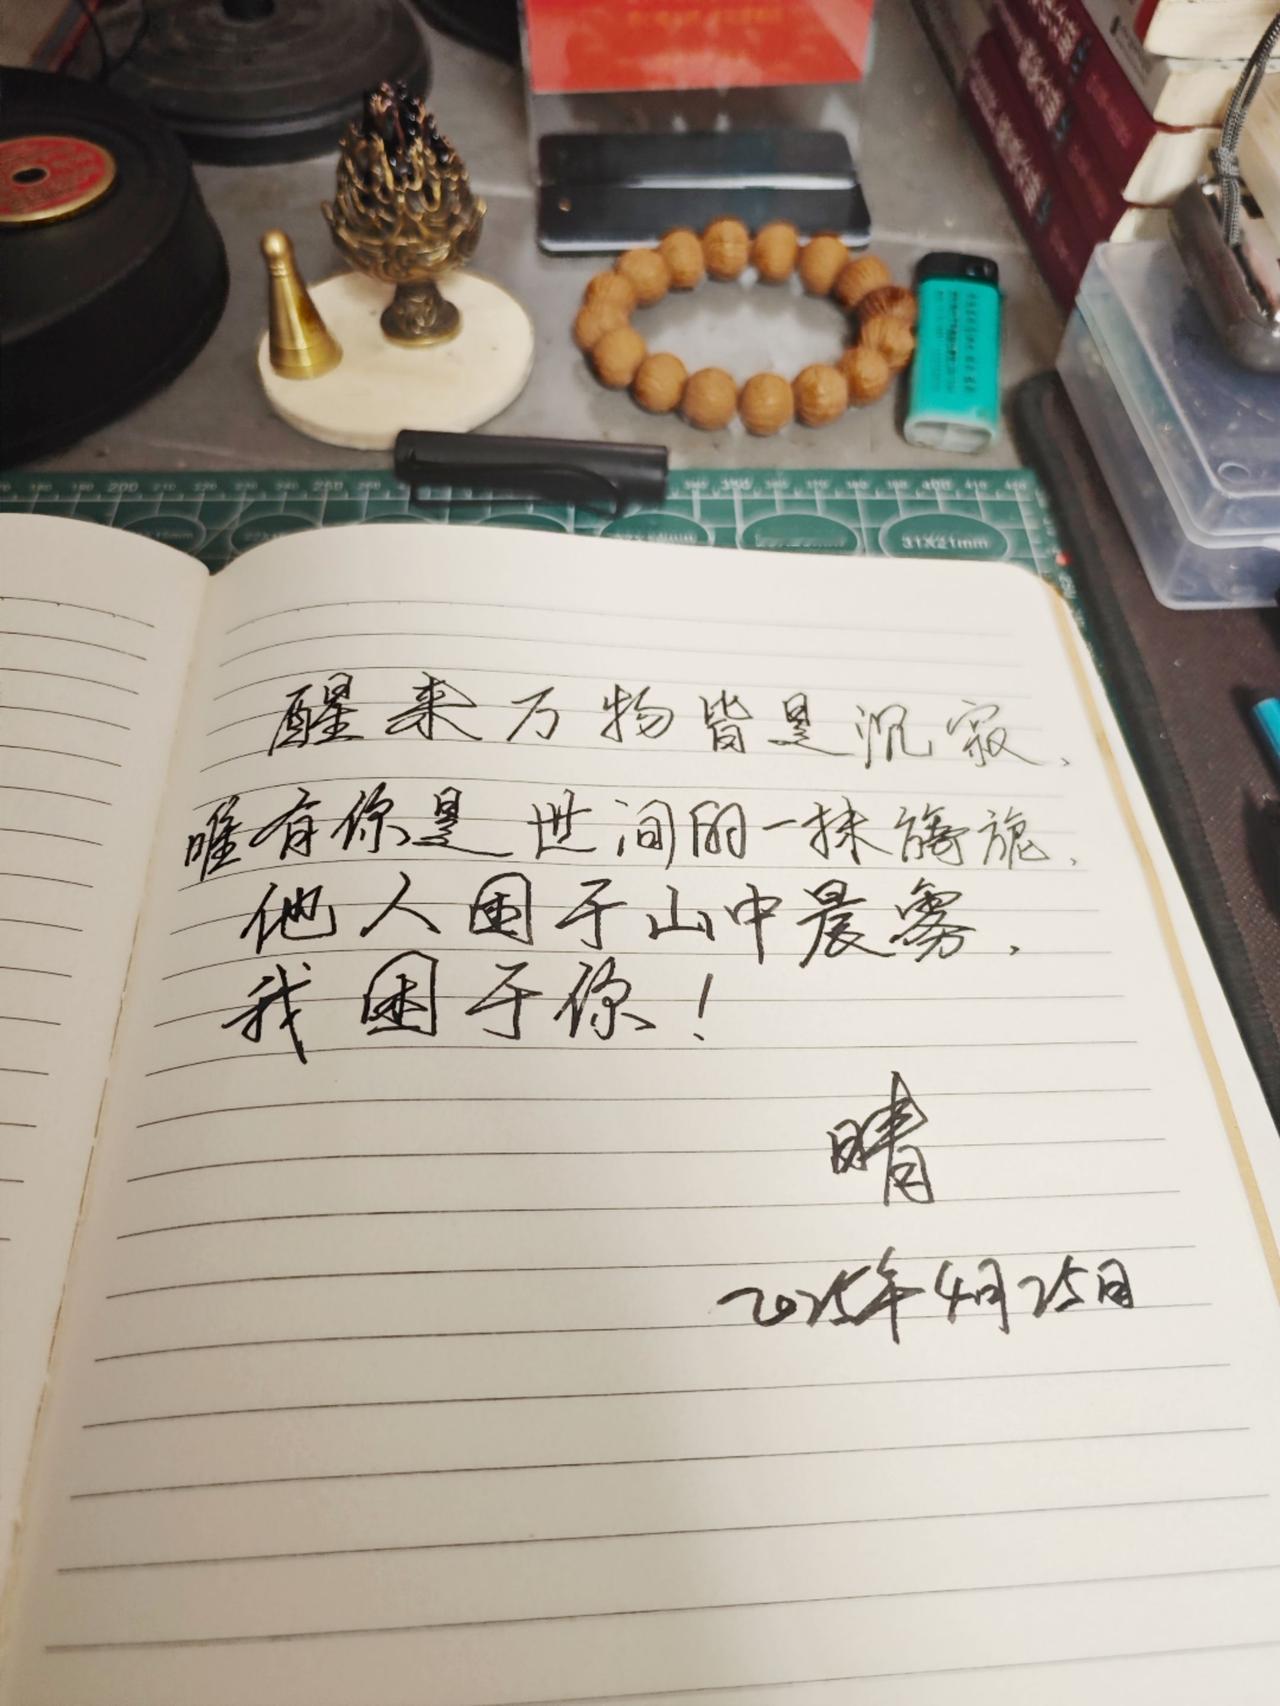 醒来万物皆是沉寂、
唯有你是世间的一抹旖旎、
他人困于山中晨雾，
我困于你！
晴
2025年4月25日
31X21mm